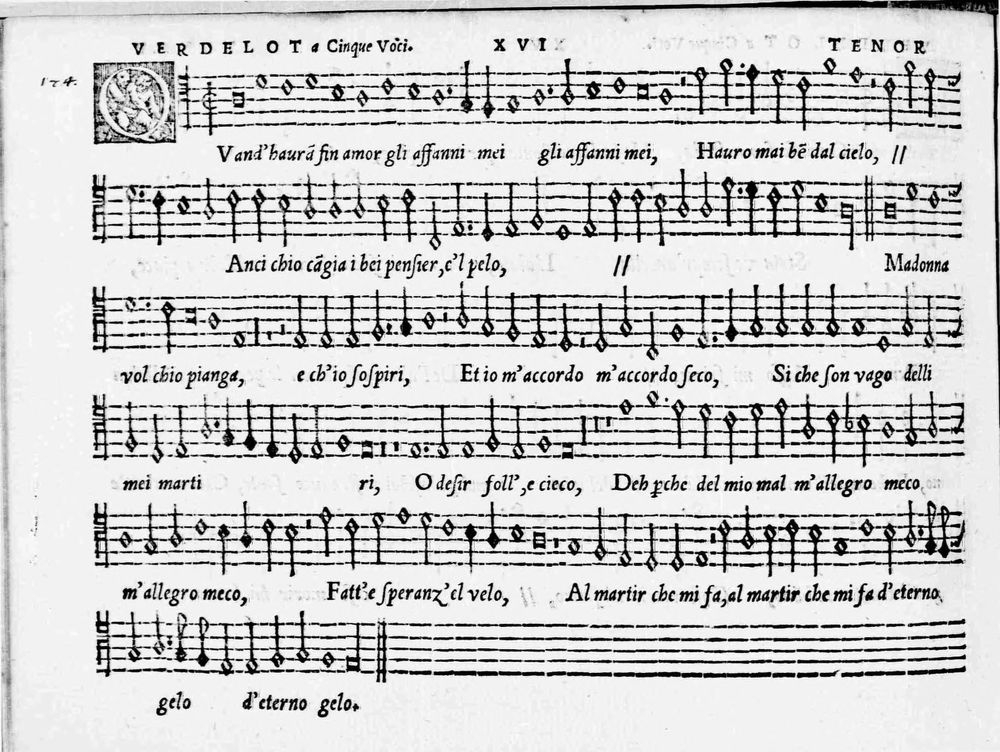 VERDELOT a Cinque Voci. XVI TENOR
174.
QVand'haurã fin amor gli affanni mei gli affanni mei, Hauro mai bẽ dal cielo, //
Anci chio cãgia i bei pensier, e'l pelo, // Madonna
vol chio pianga, e ch'io sospiri, Et io m'accordo m'accordo seco, Si che son vago delli
mei marti ri, O desir foll', e cieco, Deh ꝑche del mio mal m'allegro meco
m'allegro meco, Fatt'e speranz' el velo, Al martir che mi fa, al martir che mi fa d'eterno
gelo d'eterno gelo.